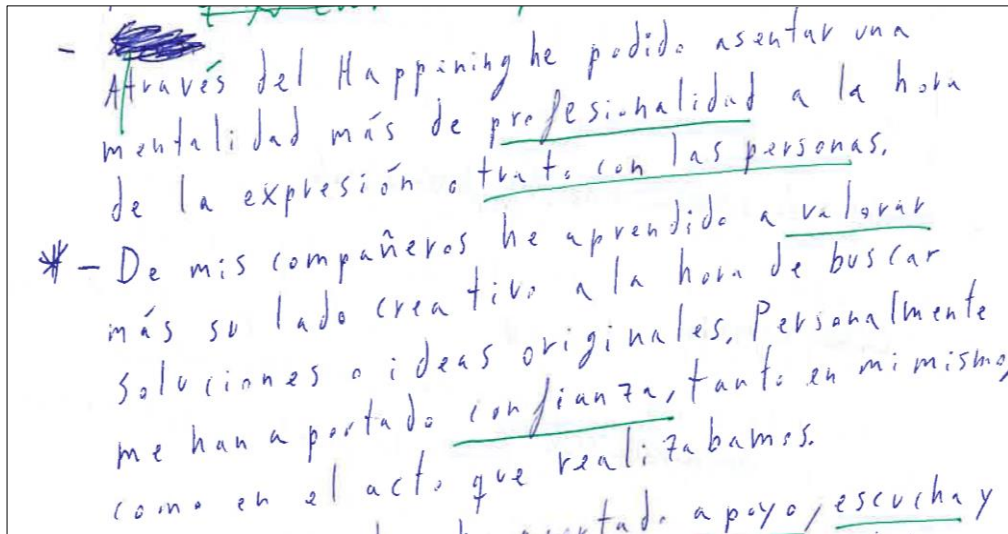 -
Através del Happining he podido asentar una
mentalidad más de profesionalidad a la hora
de la expresión o trato con las personas.
* - De mis compañeros he aprendido a valorar
más su lado creativo a la hora de buscar
soluciones o ideas originales. Personalmente
me han aportado confianza, tanto en mi mismo,
como en el acto que realizabamos.
apoyo, escucha y